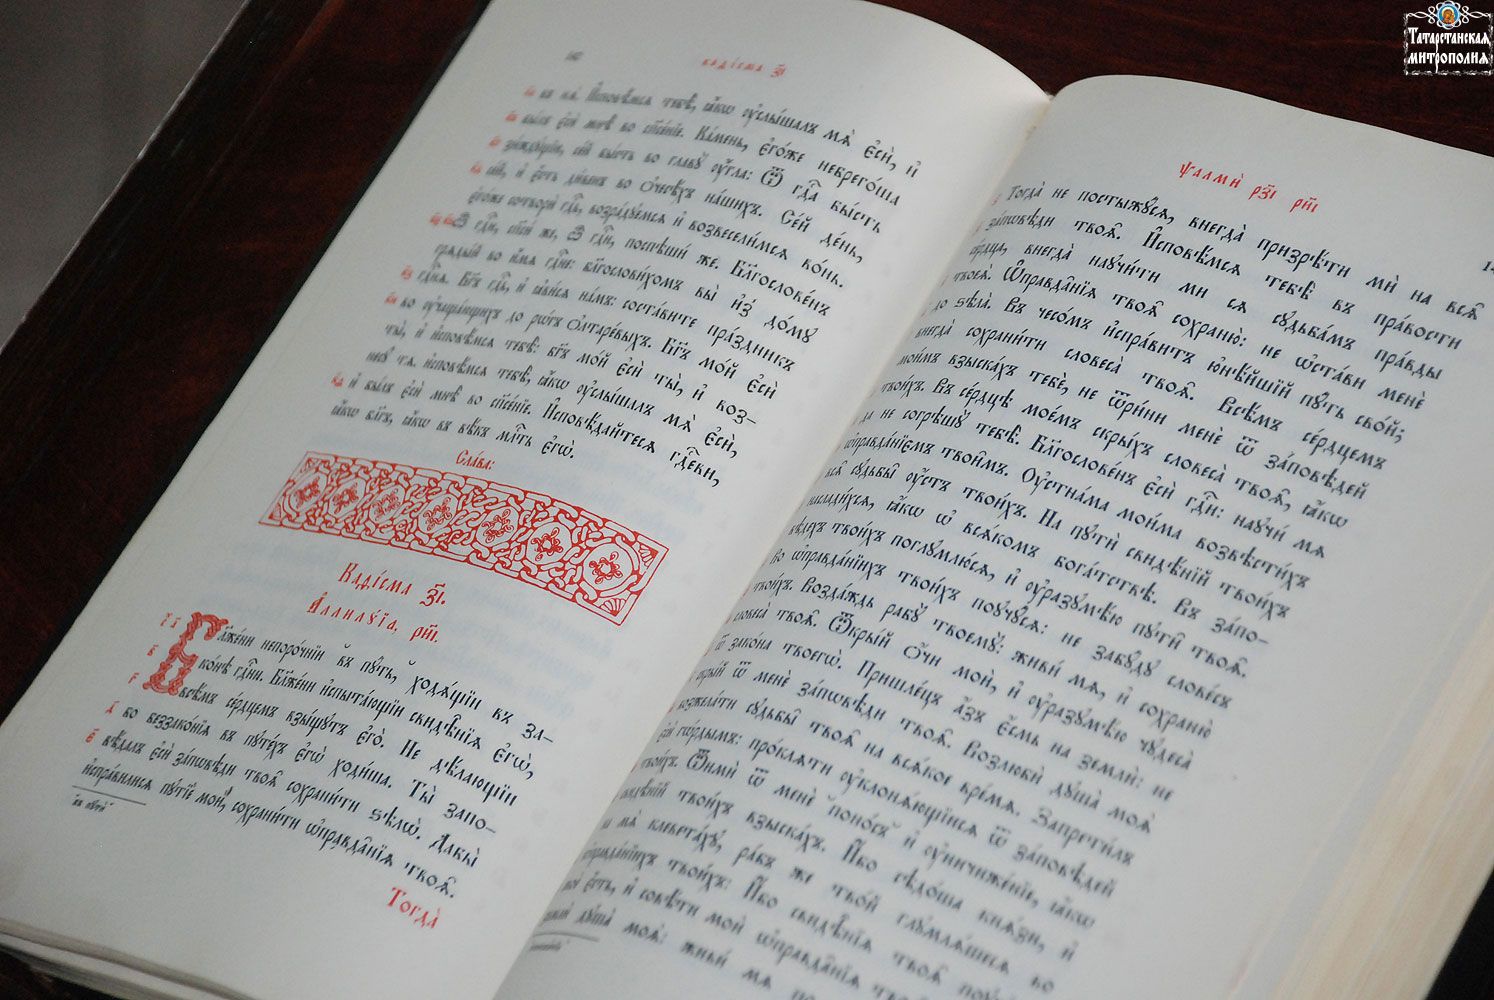 каѳі́сма з҃і
на́ мѧ. И҆сповѣ́мсѧ тебѣ̀, ꙗ҆́кѡ ᲂу҆слы́шалъ мѧ̀ є҆сѝ, и҆
бы́лъ є҆сѝ мнѣ̀ во сп҃се́нїе. Ка́мень, є҆го́же небрего́ша
зи́ждꙋщїи, се́й бы́сть во главꙋ̀ ᲂу҆́гла: Ѿ гдⷭ҇а бы́сть
се́й, и҆ є҆́сть ди́венъ во ѻ҆чесѣ́хъ на́шихъ. Се́й де́нь,
є҆го́же сотворѝ гдⷭ҇ь, возра́дꙋемсѧ и҆ возвесели́мсѧ во́нь.
Ѽ гдⷭ҇и, сп҃сѝ же, ѽ гдⷭ҇и, поспѣшѝ же. Бл҃гослове́нъ
грѧды́й во и҆́мѧ гдⷭ҇не: бл҃гослови́хомъ вы̀ и҆з̾ до́мꙋ
гдⷭ҇нѧ. Бг҃ъ гдⷭ҇ь, и҆ ꙗ҆ви́сѧ на́мъ: соста́вите пра́здникъ
во ᲂу҆чаща́ющихъ до рѡ́гъ ѻ҆лтаре́выхъ. Бг҃ъ мо́й є҆сѝ
ты̀, и҆ и҆сповѣ́мсѧ тебѣ̀: бг҃ъ мо́й є҆сѝ ты̀, и҆ воз-
несꙋ́ тѧ. и҆сповѣ́мсѧ тебѣ̀, ꙗ҆́кѡ ᲂу҆слы́шалъ мѧ̀ є҆сѝ,
и҆ бы́лъ є҆сѝ мнѣ̀ во сп҃се́нїе. И҆сповѣ́дайтесѧ гдⷭ҇еви,
ꙗ҆́кѡ бл҃гъ, ꙗ҆́кѡ въ вѣ́къ млⷭ҇ть є҆гѡ̀.
Сла́ва:
Каѳі́сма з҃і.
А҆ллилꙋ́їа, рн҃і.
Бл҃же́ни непоро́чнїи въ пꙋ́ть, ходѧ́щїи въ за-
ко́нѣ гдⷭ҇ни. Бл҃же́ни и҆спыта́ющїи свидѣ̑нїѧ є҆гѡ̀,
всѣ́мъ се́рдцемъ взы́щꙋтъ є҆го̀. Не дѣ́лающїи
во беззако́нїѧ въ пꙋте́хъ є҆гѡ̀ ходи́ша. Ты̀ запо-
вѣ́далъ є҆сѝ за́пѡвѣди твоѧ̑ сохрани́ти ѕѣлѡ̀. Дабы̀
и҆спра́вилисѧ пꙋтїѐ моѝ, сохрани́ти ѡ҆правда̑нїѧ твоѧ̑.
Тогда̀
ѱалмѝ рз҃і рн҃і
Тогда̀ не постыжꙋ́сѧ, внегда̀ призрѣ́ти мѝ на всѧ̑
за́пѡвѣди твоѧ̑. И҆сповѣ́мсѧ тебѣ̀ въ пра́вости
се́рдца, внегда̀ наꙋчи́ти ми сѧ сꙋдьба́мъ пра́вды
твоеѧ̀. Ѡ҆правда̑нїѧ твоѧ̑ сохраню̀: не ѡ҆ста́ви менѐ
до ѕѣла̀. Въ чесо́мъ и҆спра́витъ ю҆нѣ́йшїй пꙋ́ть сво́й;
внегда̀ сохрани́ти словеса̀ твоѧ̑. Всѣ́мъ се́рдцемъ
мои́мъ взыска́хъ тебѐ, не ѿри́ни менѐ ѿ за́повѣдей
твои́хъ. Въ се́рдцѣ мое́мъ скры́хъ словеса̀ твоѧ̑, ꙗ҆́кѡ
да не согрѣшꙋ̀ тебѣ̀. Бл҃гослове́нъ є҆сѝ гдⷭ҇и: наꙋчи́ мѧ
ѡ҆правда́нїємъ твои̑мъ. Оу҆стна́ма мои́ма возвѣсти́хъ
всѧ̑ сꙋдьбы̑ ᲂу҆́стъ твои́хъ. На пꙋтѝ свидѣ́нїй твои́хъ
наслади́хсѧ, ꙗ҆́кѡ ѡ҆ всѧ́комъ бога́тствѣ. Въ за́по-
вѣдехъ твои́хъ поглꙋмлю́сѧ, и҆ ᲂу҆разꙋмѣ́ю пꙋти̑ твоѧ̑.
Во ѡ҆правда́нїихъ твои́хъ поꙋчꙋ́сѧ: не забꙋ́дꙋ слове́съ
твои́хъ. Возда́ждь рабꙋ̀ твоемꙋ̀: живи́ мѧ, и҆ сохраню̀
словеса̀ твоѧ̑. Ѿкры́й ѻ҆́чи моѝ, и҆ ᲂу҆разꙋмѣ́ю чꙋдеса̀
ѿ зако́на твоегѡ̀. Пришле́цъ а҆́зъ є҆́смь на землѝ: не
скры́й ѿ менѐ за́пѡвѣди твоѧ̑. Возлюбѝ дꙋша̀ моѧ̀
возжела́ти сꙋдьбы̑ твоѧ̑ на всѧ́кое вре́мѧ. Запрети́лъ
є҆сѝ гѡ́рдымъ: про́клѧти ᲂу҆клонѧ́ющїисѧ ѿ за́повѣдей
твои́хъ. Ѿимѝ ѿ менѐ поно́съ и҆ ᲂу҆ничиже́нїе, ꙗ҆́кѡ
свидѣ́нїй твои́хъ взыска́хъ. И҆́бо сѣдо́ша кнѧ̑зи, и҆
на мѧ̀ клевета́хꙋ, ра́бъ же тво́й глꙋмлѧ́шесѧ во
ѡ҆правда́нїихъ твои́хъ: И҆́бо свидѣ̑нїѧ твоѧ̑
моѐ є҆́сть, и҆ совѣ́ти моѝ ѡ҆правда̑нїѧ твоѧ̑.
дꙋша̀ моѧ̀: живи́ мѧ
Татарстанская
митрополия